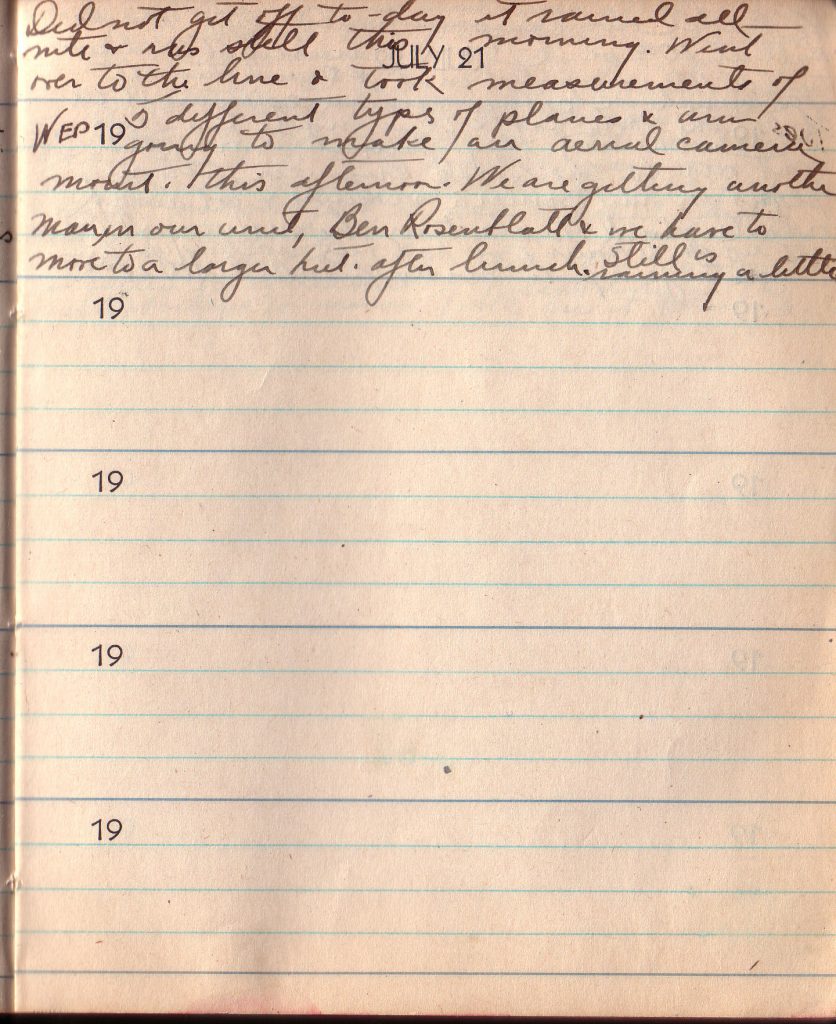 Did not get off to-day it rained all
nite & was still this morning. Went
JULY 21
over to the line & took measurements of
WED 19 5 different types of planes & am
going to make an aerial camera
mount. this afternoon. We are getting another
man in our unit, Ben Rosenblatt & we have to
move to a larger hut. after lunch. still is
raining a little
19
19
19
19